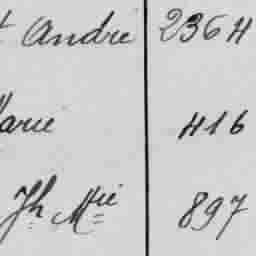 t André 2364
Marie 416
Jh Mie 897